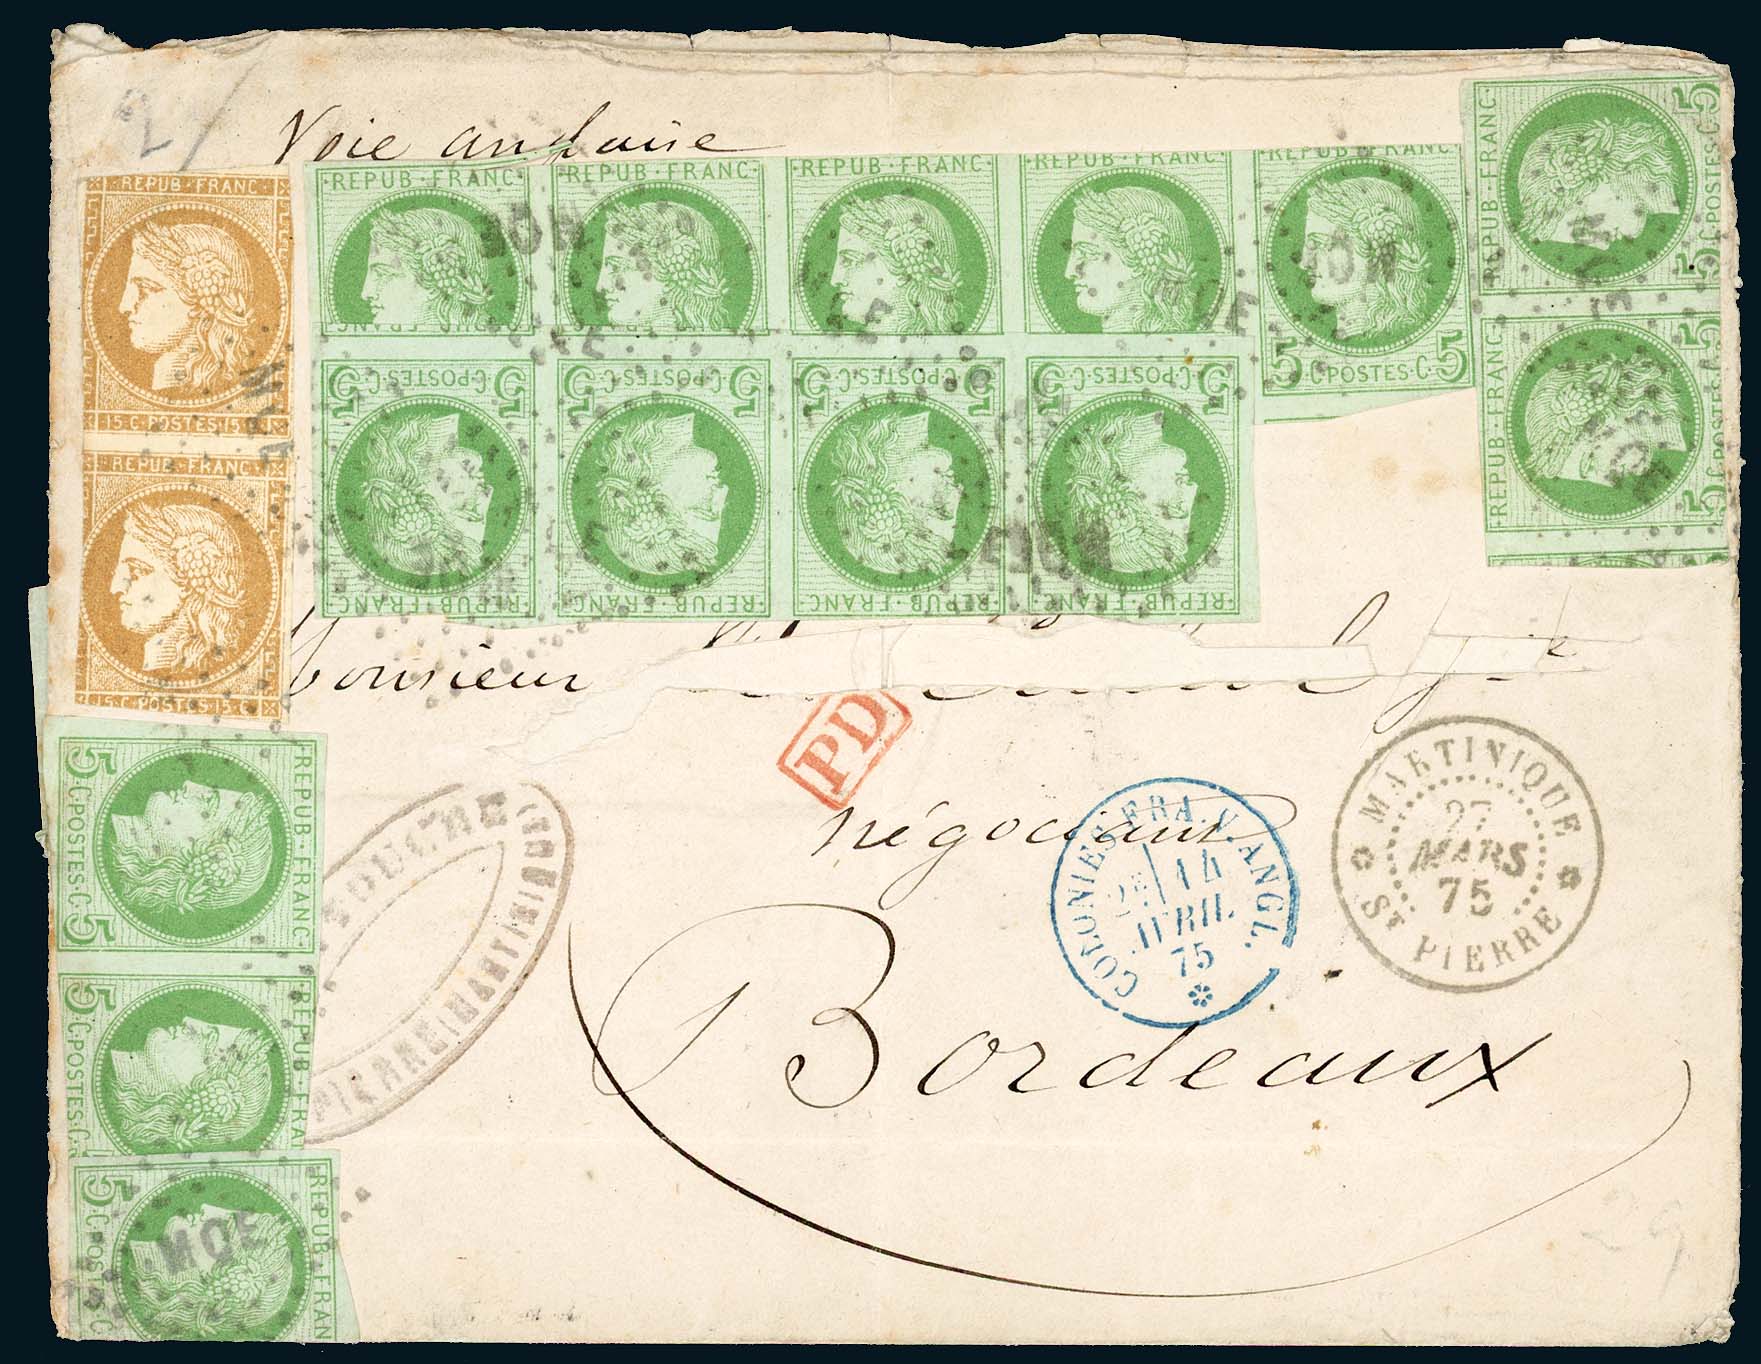 Voie anglaise
REPUB·FRANC·
15·C·POSTES·15·C
REPUB·FRANC·
15·C·POSTES·15·C
REPUB·FRANC·
REPUB·FRANC·
REPUB·FRANC·
REPUB·FRANC·
REPUB·FRANC
5·C·POSTES·C·5
REPUB·FRANC·
5·C·POSTES·C·5
REPUB·FRANC·
5·C·POSTES·C·5
5·C·POSTES·C·5
REPUB·FRANC·
5·C·POSTES·C·5
REPUB·FRANC·
5·C·POSTES·C·5
REPUB·FRANC·
5·C·POSTES·C·5
REPUB·FRANC·
MQE
MQE
MQE
MQE
Monsieur
PD
négociant
Bordeaux
COLONIES FRA. V. ANGL.
14
AVRIL
75
MARTINIQUE
27
MARS
75
ST PIERRE
5·C·POSTES·C·5
REPUB·FRANC·
5·C·POSTES·C·
REPUB·FRAN
5·C·POSTES·C
REPUB·FRAN
MQE
PIERRE (MARTINIQUE)